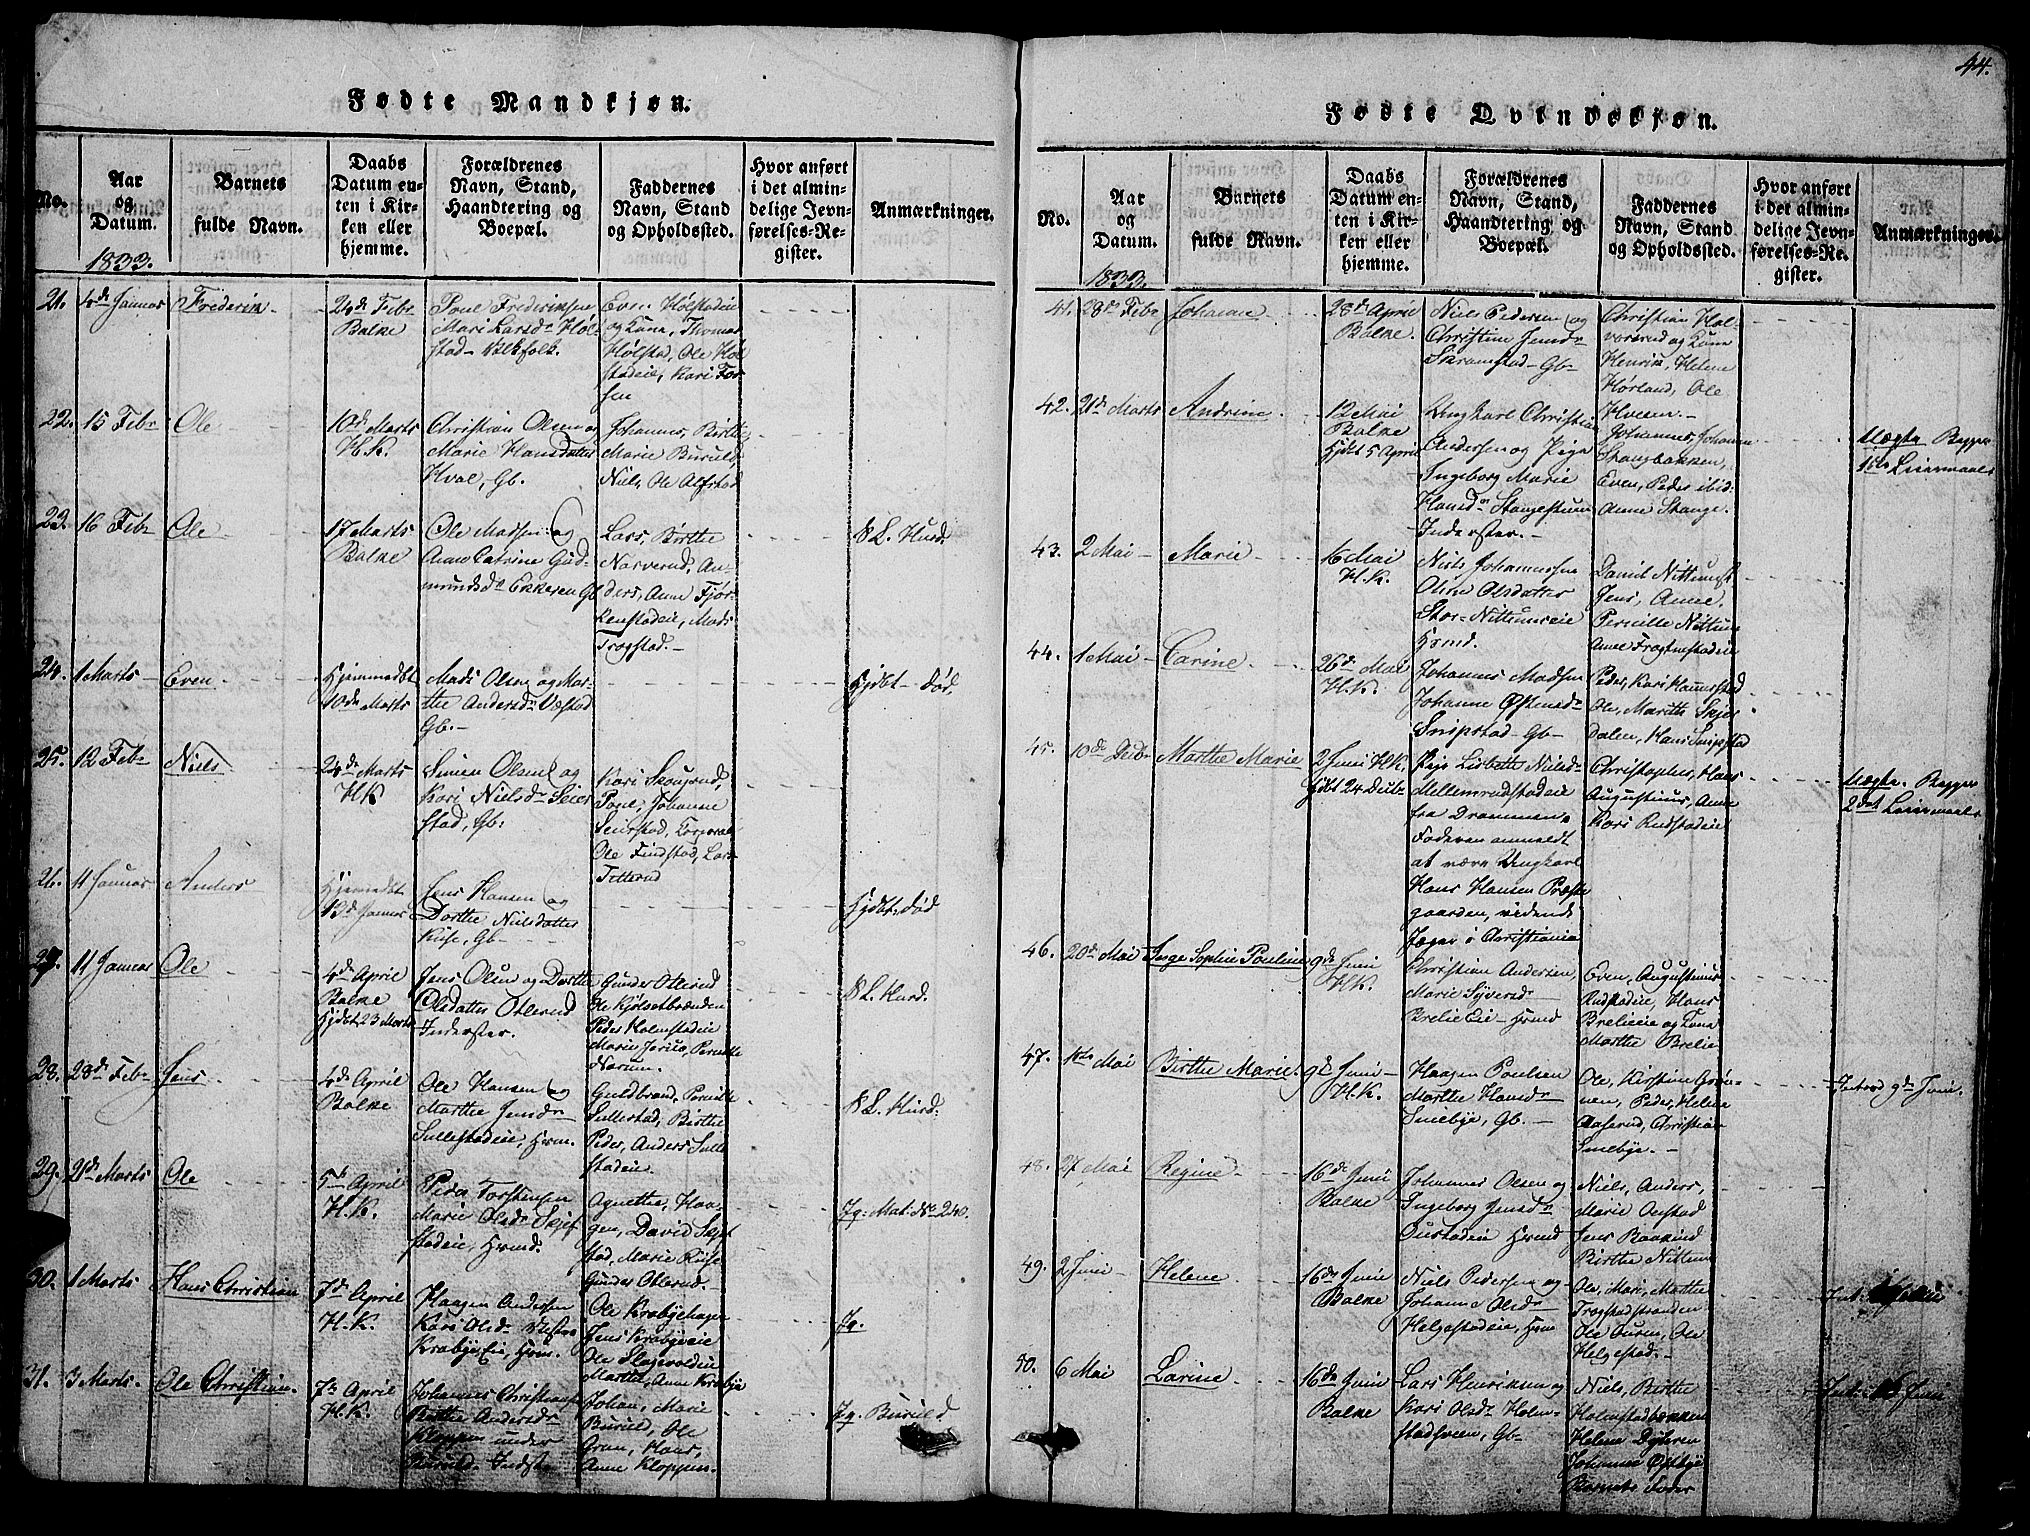 44.
Fødte Mandkjøn.
No.
Aar og Datum.
1833.
Barnets fulde Navn.
Daabs Datum enten i Kirken eller hjemme.
Forældrenes Navn, Stand, Haandtering og Boepæl.
Faddernes Navn, Stand og Opholdssted.
Hvor anført i det almindelige Jevnførelses-Register.
Anmærkninger.
21. 4de Januar
Frederik
24de Febr
Balke
Poul Frederiksen
Mari Larsdr Høl-
stad
Even Hølstadeie
og Kone, Thomas
Hølstad, Ole Høl-
stadeie, Kari
22. 15 Febr
Ole
10de Marts
H.K.
Christian Olsen og
Marie Hansdatter
Hval, Gb.
Johannes, Birthe
Marie Buruld,
Niels, Ole Alfstad
23. 16 Febr
Ole
17 Marts
Balke
Ole Madsen og
Anne Catrine Gud-
mundsdr Ekkeren Gb
Lars, Birthe
Narverud, An-
ders, Anne Fjør-
kenstadeie, Mads
Trogstad.
8 L. Hurd.
24. 1 Marts
Even
Hjemmedbt
10de Marts
Mads Olsen og Mar-
the Andersdr
Gb.
Hjdbt død.
25. 12 Febr
Niels
24de Marts
H.K
Simen Olsen og
Kari Nielsdr Seier-
stad, Gb.
Kari Skougrud,
Poul, Johanne
Seierstad, Corporal
Ole Findstad, Lars
Tetterud
26. 11 Januar
Anders
Hjemmedbt
13de Januar
Jens Hansen og
Dorthe Nielsdatter
Kise, Gb
Hjdbt. død
27. 11 Januar
Ole
4de April
Balke
Hjdbt. 23 Marts
Jens Olsen og Dorthe
Olsdatter Oterud
Inderster.
Gunder Oterud
Ole Kjølsetbrænden
Peder Holmstadeie
Marie
Narum.
8 L. Hurd.
28. 28de Febr
Jens
4de April
Balke
Ole Hansen og
Marthe Jensdr
Sullestadeie, Hvm.
Guldbrand, Pernille
Sullestad, Birthe
Peder, Anders Sulle-
stadeie.
8 L. Hurd.
29. 2de Marts
Ole
5te April
H.K.
Peder Torstensen
Marie Olsdr Skjef-
stadeie, Hvmd.
Agnethe, Haa-
gen, David
stad, Marie Kise
Gunder Oterud.
Jg. Mat. No 240.
30. 1 Marts
Hans Christian
7de April
H.K.
Haagen Andersen
Kari Olsdr Vestre
KrabyeEie, Hvm.
Ole Krabyehagen
Jens Krabyeeie
Ole Slagsvoldeie
Marthe, Anne Krabye
Jg.
31. 3 Marts.
Ole Christian
7de April
H.K.
Johannes Christians
Birthe Andersdr
Kloppen under
Buruld. Indst
Johan, Marie
Buruld, Ole
Gran, Hans,
Anne Kloppen.
Jg. Buruld
Fødte Qvindekjøn.
No.
Aar og Datum.
1833.
Barnets fulde Navn.
Daabs Datum enten i Kirken eller hjemme.
Forældrenes Navn, Stand, Haandtering og Boepæl.
Faddernes Navn, Stand og Opholdssted.
Hvor anført i det almindelige Jevnførelses-Register.
Anmærkninger.
41. 28de Febr
Johanne
28de April
Balke.
Niels Pedersen og
Christine Jensdr
Skramstad Gb
Christian Hal-
vorsrud og Kone
Henrik, Helene
Hørland, Ole
Hveem.
42. 21de Marts
Andrine
12 Mai
Balke
Hjdbt 5 April
Ungkarl Christian
Andersen og Pige
Ingeborg Marie
Hansdr Stangestuen
Inderster.
Johannes, Johanne
Stangbakken,
Even, Peder ibid.
Anne Stange.
Uægte Begges
1ste Leiermaal
43. 2 Mai
Marie
16 Mai
H.K.
Niels Johannessen
Oline Olsdatter
Stor-Nettumseie
Hvmd.
Daniel Nettum,
Jens, Anne.
Pernille Nettum
Anne Frognstadeie
44. 1 Mai
Carine
26de Mai
H.K.
Johannes Madsen
Johanne Østensdr
Snipstad Gb
Peder, Kari
Ole, Marthe Skjel-
dalen, Hans Snipstad
45. 10de Decbr
Marthe Marie
2 Juni H.K.
hjdbt 24 Decbr
Pige Lisbeth Nielsdr
Mellemrudstadeie
fra Drammen.
Faderen anmeldt
at være Ungkarl
Hans Hansen Præste-
gaarden, ridende
Jæger i Christiania
Christopher, Hans
Augustinus, Anne
Kari Rudstadeie
Uægte. Begges
2det Leiermaal
46. 20de Mai
Inge Sophie Pouline
9de Juni
H.K.
Christian Andersen,
Marie Syversdr
BrelieEie Hvmd
Even, Augustinus
Rudstadeie, Hans
Brelieie og Kone
Marthe Brelie
47. 1ste Mai
Birthe Marie
9de Juni
H.K.
Haagen Poulsen
Marthe Hansdr
Smebye, Gb.
Ole, Kirstine Grøn-
nen, Peder, Helene
Aaserud, Christian
Smebye.
Introd 9de Juni.
48. 27 Mai
Regine
16de Juni
Balke
Johannes Olsen og
Ingeborg Jensdr
Ouestadeie Hvmd
Niels, Anders,
Marie Onstad
Jens Baakind
Birthe Nettum
49. 2 Juni
Helene
16de Juni
Balke
Niels Pedersen og
Johanne Olsdr
Helgestadeie, Hvm
Ole, Mari, Marthe
Trogstadstranden
Ole Ouren, Ole
Helgestad.
Int.
50. 6 Mai
Larine
16de Juni
Balke
Lars Henriksen og
Kari Olsdr Holm-
stadsveen, Gb
Niels, Birthe
Holmstadbækken
Helene Dysteren
Johannes Østbye
Barnets Fader
Int. 16 Juni